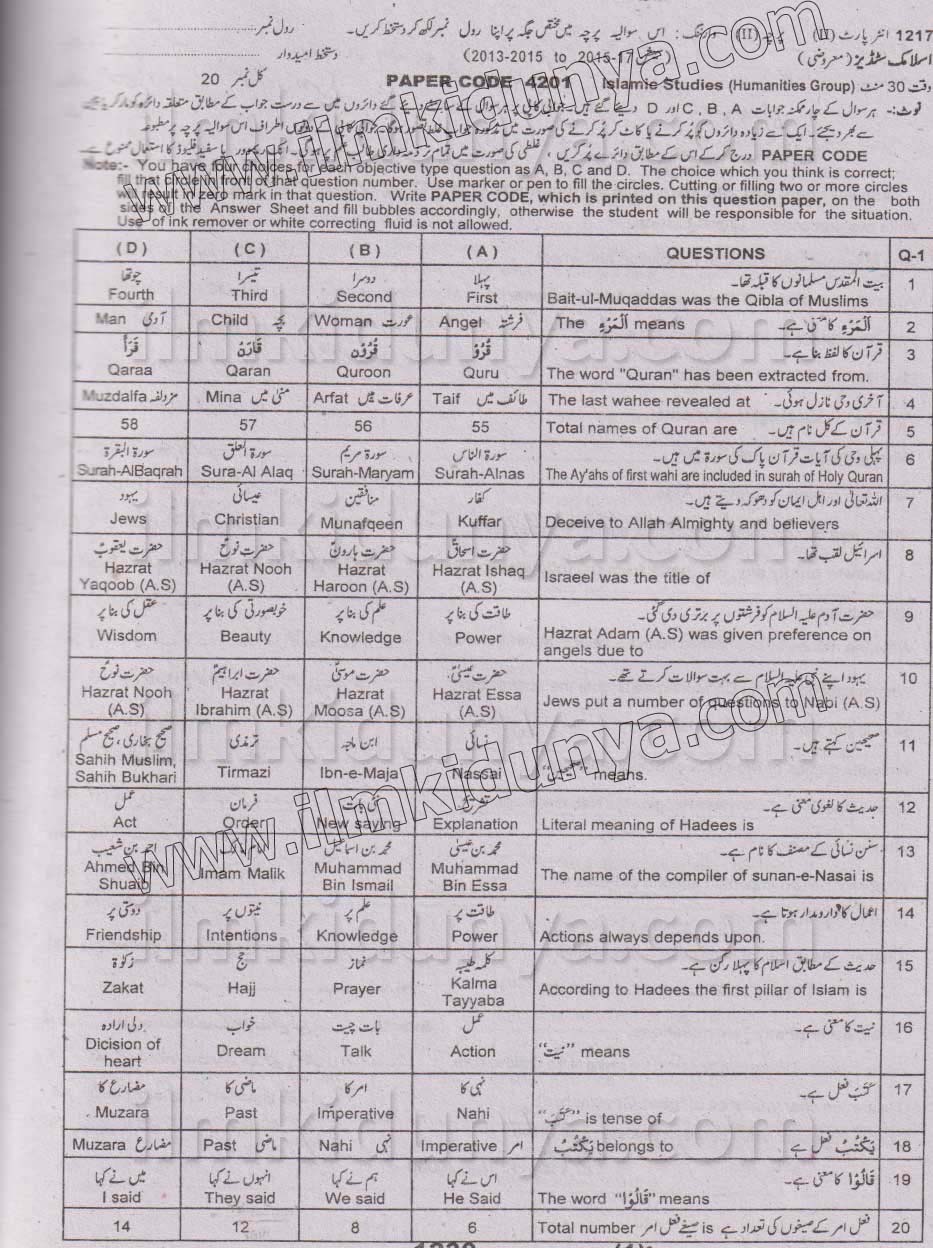 1217 انٹر پارٹ (II) پرچہ (II) وارننگ: اس سوالیہ پرچہ میں مختص جگہ پر اپنا رول نمبر لکھ کر دستخط کریں۔ رول نمبر
اسلامک سٹڈیز (معروضی) (2013-2015 to 2015-17 سیشن) دستخط امیدوار
وقت 30 منٹ Islamic Studies (Humanities Group) PAPER CODE 4201 کل نمبر 20
درج کر کے اس کے مطابق دائرے پُر کریں PAPER CODE
Note:- You have four choices for each objective type question as A, B, C and D. The choice which you think is correct;
fill that circle in front of that question number. Use marker or pen to fill the circles. Cutting or filling two or more circles
will result in zero mark in that question. Write PAPER CODE, which is printed on this question paper, on the both
sides of the Answer Sheet and fill bubbles accordingly, otherwise the student will be responsible for the situation.
Use of ink remover or white correcting fluid is not allowed.
(D) (C) (B) (A) QUESTIONS Q-1
چوتھا تیسرا دوسرا پہلا بیت المقدس مسلمانوں کا قبلہ تھا۔ 1
Fourth Third Second First Bait-ul-Muqaddas was the Qibla of Muslims
Man آدمی Child بچہ Woman عورت Angel فرشتہ The اَلْمَرْءِ means اَلْمَرْءِ کا معنی ہے۔ 2
قَرَأَ قَارَنَ قُرُوْن قُرُوْ قرآن کا لفظ بنا ہے۔ 3
Qaraa Qaran Quroon Quru The word "Quran" has been extracted from.
Muzdalfa مزدلفہ Mina منیٰ میں Arfat عرفات میں Taif طائف میں The last wahee revealed at آخری وحی نازل ہوئی۔ 4
58 57 56 55 Total names of Quran are قرآن کے کل نام ہیں۔ 5
سورۃ البقرۃ سورۃ العلق سورۃ مریم سورۃ الناس پہلی وحی کی آیات قرآن پاک کی سورۃ میں ہیں۔ 6
Surah-AlBaqrah Sura-Al Alaq Surah-Maryam Surah-Alnas The Ay'ahs of first wahi are included in surah of Holy Quran
یہود عیسائی منافقین کفار اللہ تعالیٰ اور اہل ایمان کو دھوکہ دیتے ہیں۔ 7
Jews Christian Munafqeen Kuffar Deceive to Allah Almighty and believers
حضرت یعقوبؑ حضرت نوحؑ حضرت ہارونؑ حضرت اسحاقؑ اسرائیل لقب تھا۔ 8
Hazrat Yaqoob (A.S) Hazrat Nooh (A.S) Hazrat Haroon (A.S) Hazrat Ishaq (A.S) Israeel was the title of
عقل کی بنا پر خوبصورتی کی بنا پر علم کی بنا پر طاقت کی بنا پر حضرت آدم علیہ السلام کو فرشتوں پر برتری دی گئی۔ 9
Wisdom Beauty Knowledge Power Hazrat Adam (A.S) was given preference on angels due to
حضرت نوحؑ حضرت ابراہیمؑ حضرت موسیٰؑ حضرت عیسیٰؑ یہود اپنے نبی علیہ السلام سے بہت سوالات کرتے تھے۔ 10
Hazrat Nooh (A.S) Hazrat Ibrahim (A.S) Hazrat Moosa (A.S) Hazrat Essa (A.S) Jews put a number of questions to Nabi (A.S)
صحیح بخاری، صحیح مسلم ترمذی ابن ماجہ نسائی صحیحین کہتے ہیں۔ 11
Sahih Muslim, Sahih Bukhari Tirmazi Ibn-e-Maja Nassai "صحیحین" means.
عمل فرمان نئی بات تشریح حدیث کا لغوی معنی ہے۔ 12
Act Order New saying Explanation Literal meaning of Hadees is
احمد بن شعیب امام مالک محمد بن اسماعیل محمد بن عیسیٰ سنن نسائی کے مصنف کا نام ہے۔ 13
Ahmed Bin Shuaib Imam Malik Muhammad Bin Ismail Muhammad Bin Essa The name of the compiler of sunan-e-Nasai is
دوستی پر نیتوں پر علم پر طاقت پر اعمال کا دارومدار ہوتا ہے۔ 14
Friendship Intentions Knowledge Power Actions always depends upon.
زکوٰۃ حج نماز کلمہ طیبہ حدیث کے مطابق اسلام کا پہلا رکن ہے۔ 15
Zakat Hajj Prayer Kalma Tayyaba According to Hadees the first pillar of Islam is
دلی ارادہ خواب بات چیت عمل نیت کا معنی ہے۔ 16
Dicision of heart Dream Talk Action "نیت" means
مضارع کا ماضی کا امر کا نہی کا کَتَبَ فعل ہے۔ 17
Muzara Past Imperative Nahi "کَتَبَ" is tense of
Muzara مضارع Past ماضی Nahi نہی Imperative امر یَکْتُبُ belongs to یَکْتُبُ فعل ہے 18
میں نے کہا انہوں نے کہا ہم نے کہا اس نے کہا قَالُوْا کا معنی ہے۔ 19
I said They said We said He Said The word "قَالُوْا" means
14 12 8 6 Total number صیغے فعل امر is فعل امر کے صیغوں کی تعداد ہے 20
www.ilmkidunya.com